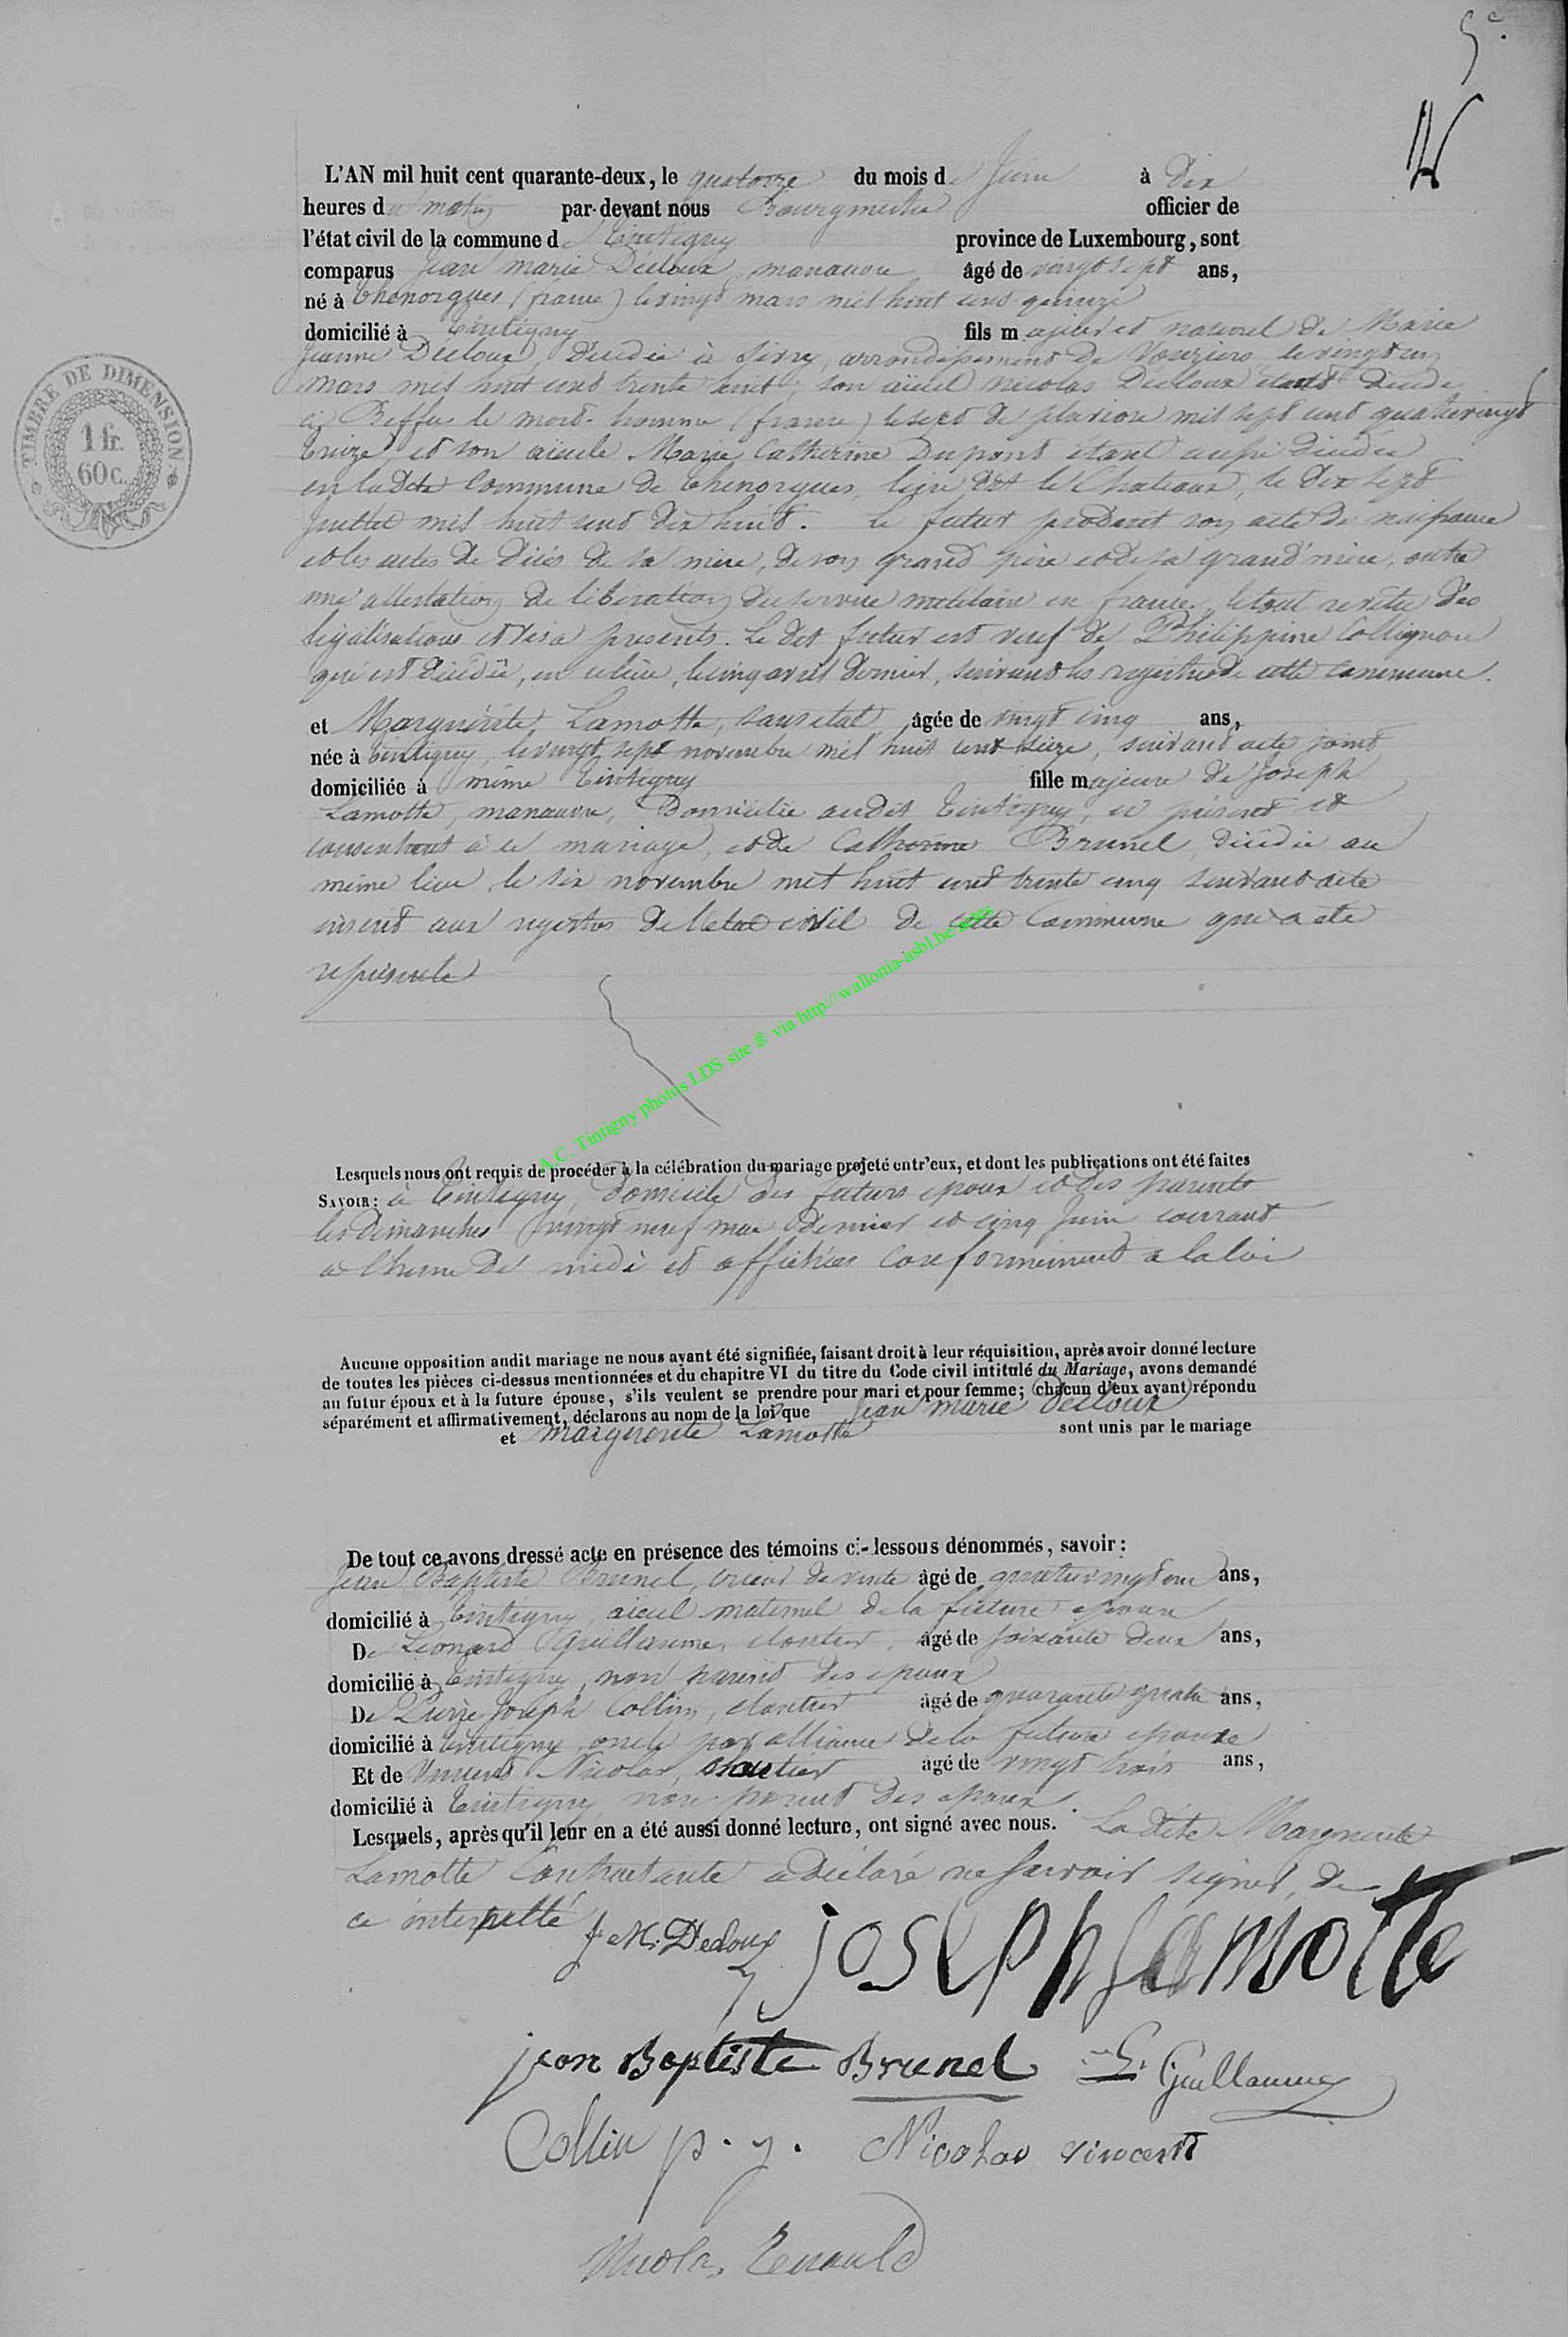 5e.
L'AN mil huit cent quarante-deux, le quatorze du mois de Juin à dix
heures du matin par-devant nous Bourgmestre officier de
l'état civil de la commune de Tintigny province de Luxembourg, sont
comparus Jean marie Decloux, manœuvre âgé de vingt sept ans,
né à thenorgues (france) le vingt mars mil huit cent quinze
domicilié à Tintigny fils majeur et naturel de Marie
Jeanne Decloux, décédée à Sivry, arrondissement de Vouziers, le vingt un
mars mil huit cent trente huit, son aïeul Nicolas Decloux étant décédé
à Beffu le mort-homme (france) le sept de pluviose mil sept cent quatrevingt
treize, et son aïeule Marie Catherine Dupont étant aussi décédée
en la dite Commune de thenorgues, lieu dit le Chateaux, le dix sept
Juillet mil huit cent dix huit. Le futur produit son acte de naissance
et les actes de décès de sa mère, de son grand père et de sa grand'mère, outre
une attestation de libération du service militaire en france, le tout revêtu des
légalisations et visa presents. Le dit futur est veuf de Philippine Collignon
qui est décédée, en celieu, le cinq avril dernier, suivant les registres de cette commune.
et Marguerite Lamotte, sans etat âgée de vingt cinq ans,
née à tintigny, le vingt sept novembre mil huit cent seize, suivant acte joint
domiciliée à même Tintigny fille majeure de Joseph
Lamotte, manœuvre, domicilié audit Tintigny, ici présent et
consentant à ce mariage, et de Catherine Brunel, décédée au
même lieu, le six novembre mil huit cent trente cinq suivant acte
inscrit aux registres de l'etat civil de cette Commune qui a été
representé
A.C. Tintigny photos LDS site ® via http://wallonia-asbl.be
Lesquels nous ont requis de procéder à la célébration du mariage projeté entr'eux, et dont les publications ont été faites
SAVOIR: à Tintigny, domicile des futurs epoux et des parents
les dimanches vingt neuf mai dernier et cinq Juin courant
a l'heure de midi et affichées conformément a la loi
Aucune opposition audit mariage ne nous ayant été signifiée, faisant droit à leur réquisition, après avoir donné lecture
de toutes les pièces ci-dessus mentionnées et du chapitre VI du titre du Code civil intitulé du Mariage, avons demandé
au futur époux et à la future épouse, s'ils veulent se prendre pour mari et pour femme; chacun d'eux ayant répondu
séparément et affirmativement, déclarons au nom de la loi que Jean marie Decloux
et marguerite Lamotte sont unis par le mariage
De tout ce avons dressé acte en présence des témoins ci-dessous dénommés, savoir:
Jean Baptiste Brunel, crieur de vente âgé de quatrevingt un ans,
domicilié à Tintigny, aieul maternel de la future epouse
De Léonard Guillaume, cloutier, âgé de soixante deux ans,
domicilié à Tintigny, non parent des epoux
De Pierre Joseph Collin, cloutier âgé de quarante quatre ans,
domicilié à tintigny, oncle par alliance de la future epouse
Et de Vincent Nicolas, cloutier âgé de vingt trois ans,
domicilié à Tintigny, non parent des epoux.
Lesquels, après qu'il leur en a été aussi donné lecture, ont signé avec nous. La dite Marguerite
Lamotte Contractante a déclaré ne Savoir signer, de
ce interpellé
J. M. Decloux joseph lamotte
jean Baptiste Brunel L. Guillaume
Collin p. j. Nicolas vincent
Nicolas Renauld
TIMBRE DE DIMENSION
1 fr.
60 c.